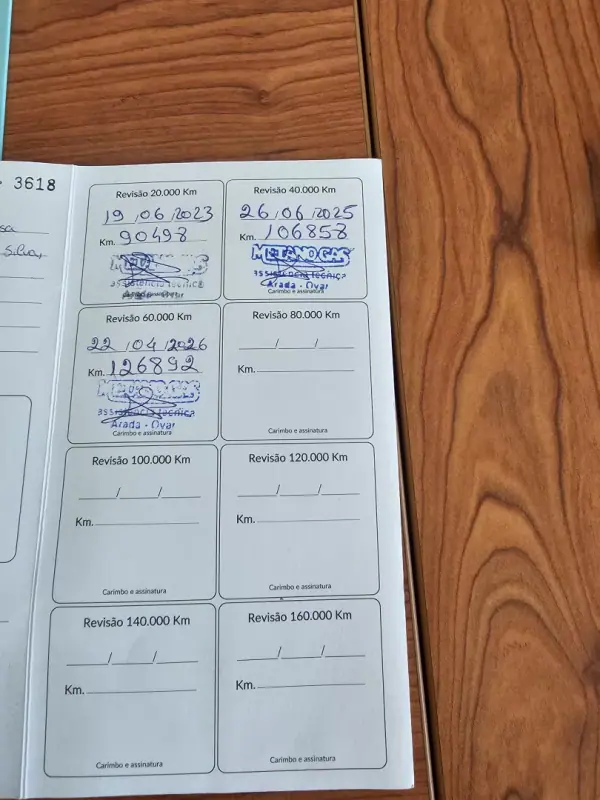 3618
Silva,
Revisão 20.000 Km
19/06/2023
Km. 90498
assistencia tecnica
Revisão 40.000 Km
26/06/2025
Km. 106858
METANOGAS
assistencia tecnica
Arada - Ovar
Carimbo e assinatura
Revisão 60.000 Km
22/04/2026
Km. 126892
METANOGAS
assistencia tecnica
Arada - Ovar
Carimbo e assinatura
Revisão 80.000 Km
___/___/___
Km.
Carimbo e assinatura
Revisão 100.000 Km
___/___/___
Km.
Carimbo e assinatura
Revisão 120.000 Km
___/___/___
Km.
Carimbo e assinatura
Revisão 140.000 Km
___/___/___
Km.
Carimbo e assinatura
Revisão 160.000 Km
___/___/___
Km.
Carimbo e assinatura